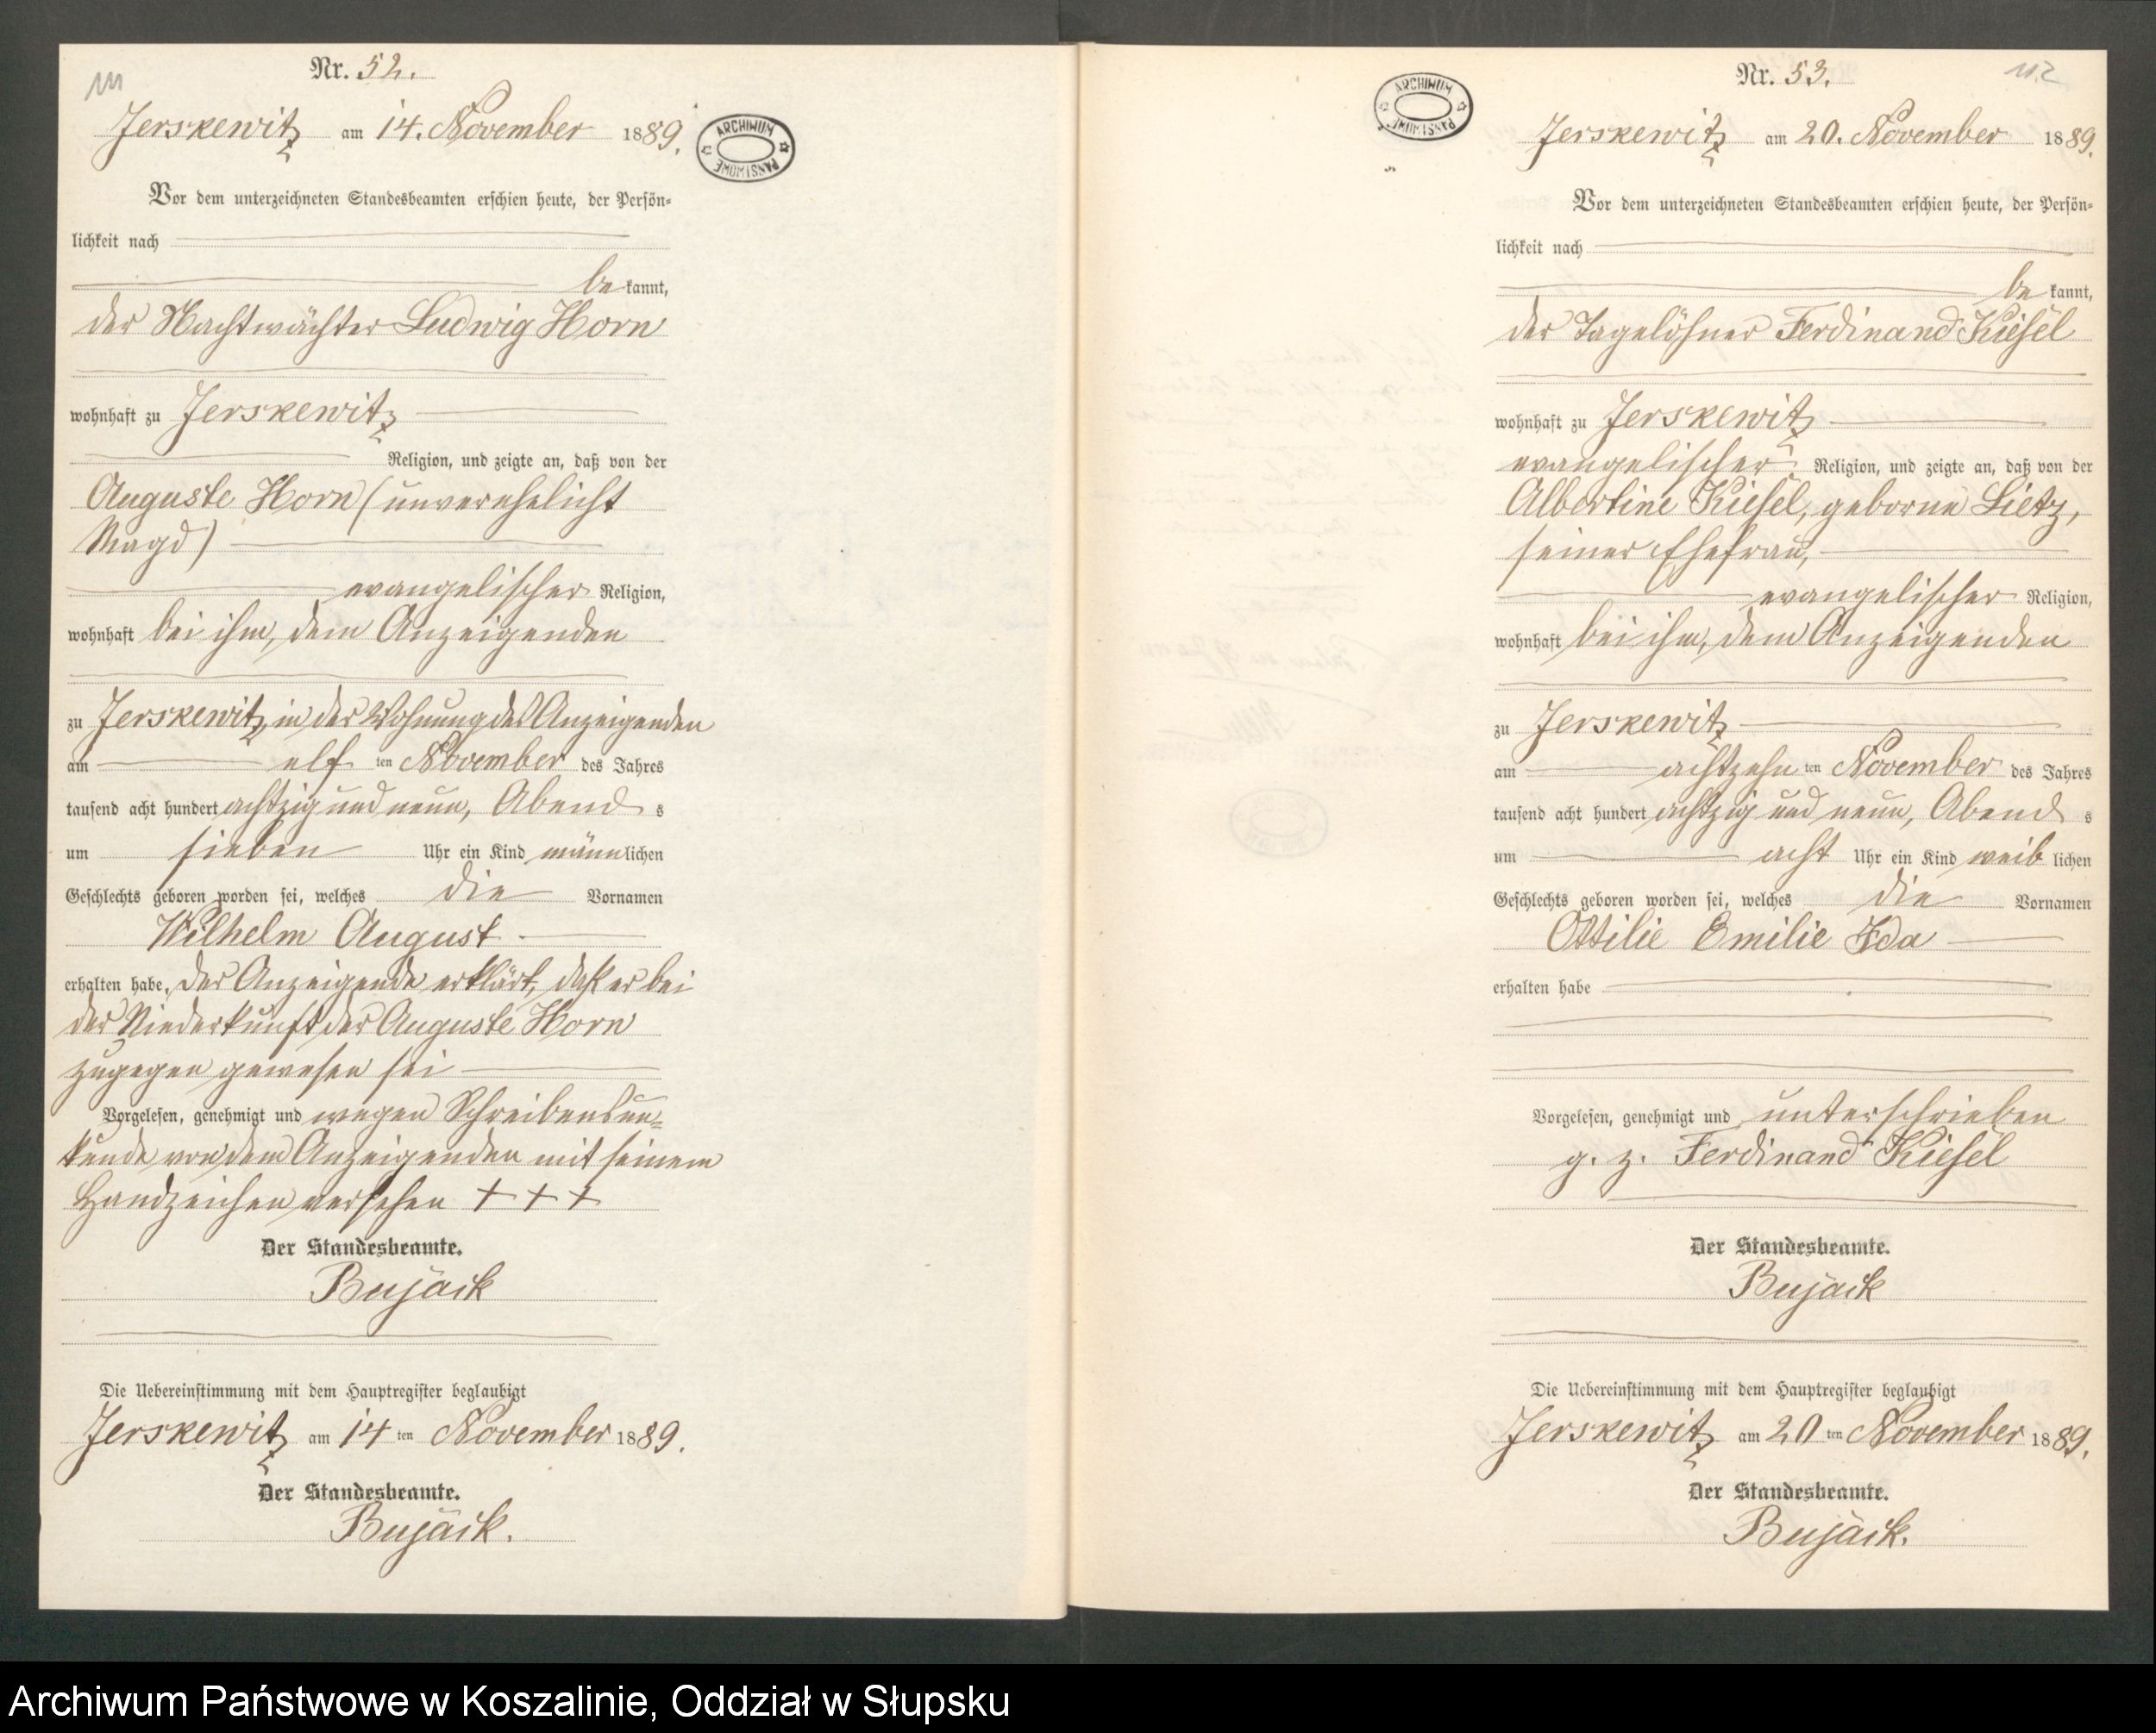 111
Nr. 52.
Jerskewitz am 14. November 1889.
ARCHIWUM PAŃSTWOWE
Vor dem unterzeichneten Standesbeamten erschien heute, der Persön-
lichkeit nach
be kannt,
der Nachtwächter Ludwig Horn
wohnhaft zu Jerskewitz
Religion, und zeigte an, daß von der
Auguste Horn (unverehelicht
Magd)
evangelischer Religion,
wohnhaft bei ihm, dem Anzeigenden
zu Jerskewitz, in der Wohnung des Anzeigenden
am elf ten November des Jahres
tausend acht hundert achtzig und neun, Abend s
um sieben Uhr ein Kind männlichen
Geschlechts geboren worden sei, welches die Vornamen
Wilhelm August
erhalten habe. Der Anzeigende erklärt, daß er bei
der Niederkunft der Auguste Horn
zugegen gewesen sei
Vorgelesen, genehmigt und wegen Schreibensun-
kunde von dem Anzeigenden mit seinem
Handzeichen versehen + + +
Der Standesbeamte.
Bujack
Die Uebereinstimmung mit dem Hauptregister beglaubigt
Jerskewitz am 14 ten November 1889.
Der Standesbeamte.
Bujack.
112
Nr. 53.
ARCHIWUM PAŃSTWOWE
Jerskewitz am 20. November 1889.
Vor dem unterzeichneten Standesbeamten erschien heute, der Persön-
lichkeit nach
be kannt,
der Tagelöhner Ferdinand Kiesel
wohnhaft zu Jerskewitz
evangelischer Religion, und zeigte an, daß von der
Albertine Kiesel, geborne Lietz,
seiner Ehefrau,
evangelischer Religion,
wohnhaft bei ihm, dem Anzeigenden
zu Jerskewitz
am achtzehn ten November des Jahres
tausend acht hundert achtzig und neun, Abend s
um acht Uhr ein Kind weib lichen
Geschlechts geboren worden sei, welches die Vornamen
Ottilie Emilie Ida
erhalten habe
Vorgelesen, genehmigt und unterschrieben
g. z. Ferdinand Kiesel
Der Standesbeamte.
Bujack
Die Uebereinstimmung mit dem Hauptregister beglaubigt
Jerskewitz am 20 ten November 1889.
Der Standesbeamte.
Bujack.
Archiwum Państwowe w Koszalinie, Oddział w Słupsku